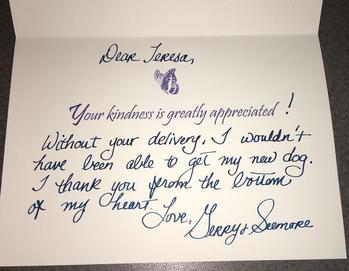 Dear Teresa,
Your kindness is greatly appreciated !
Without your delivery, I wouldn't
have been able to get my new dog.
I thank you from the bottom
of my heart. Love,
Gerry & Seemore